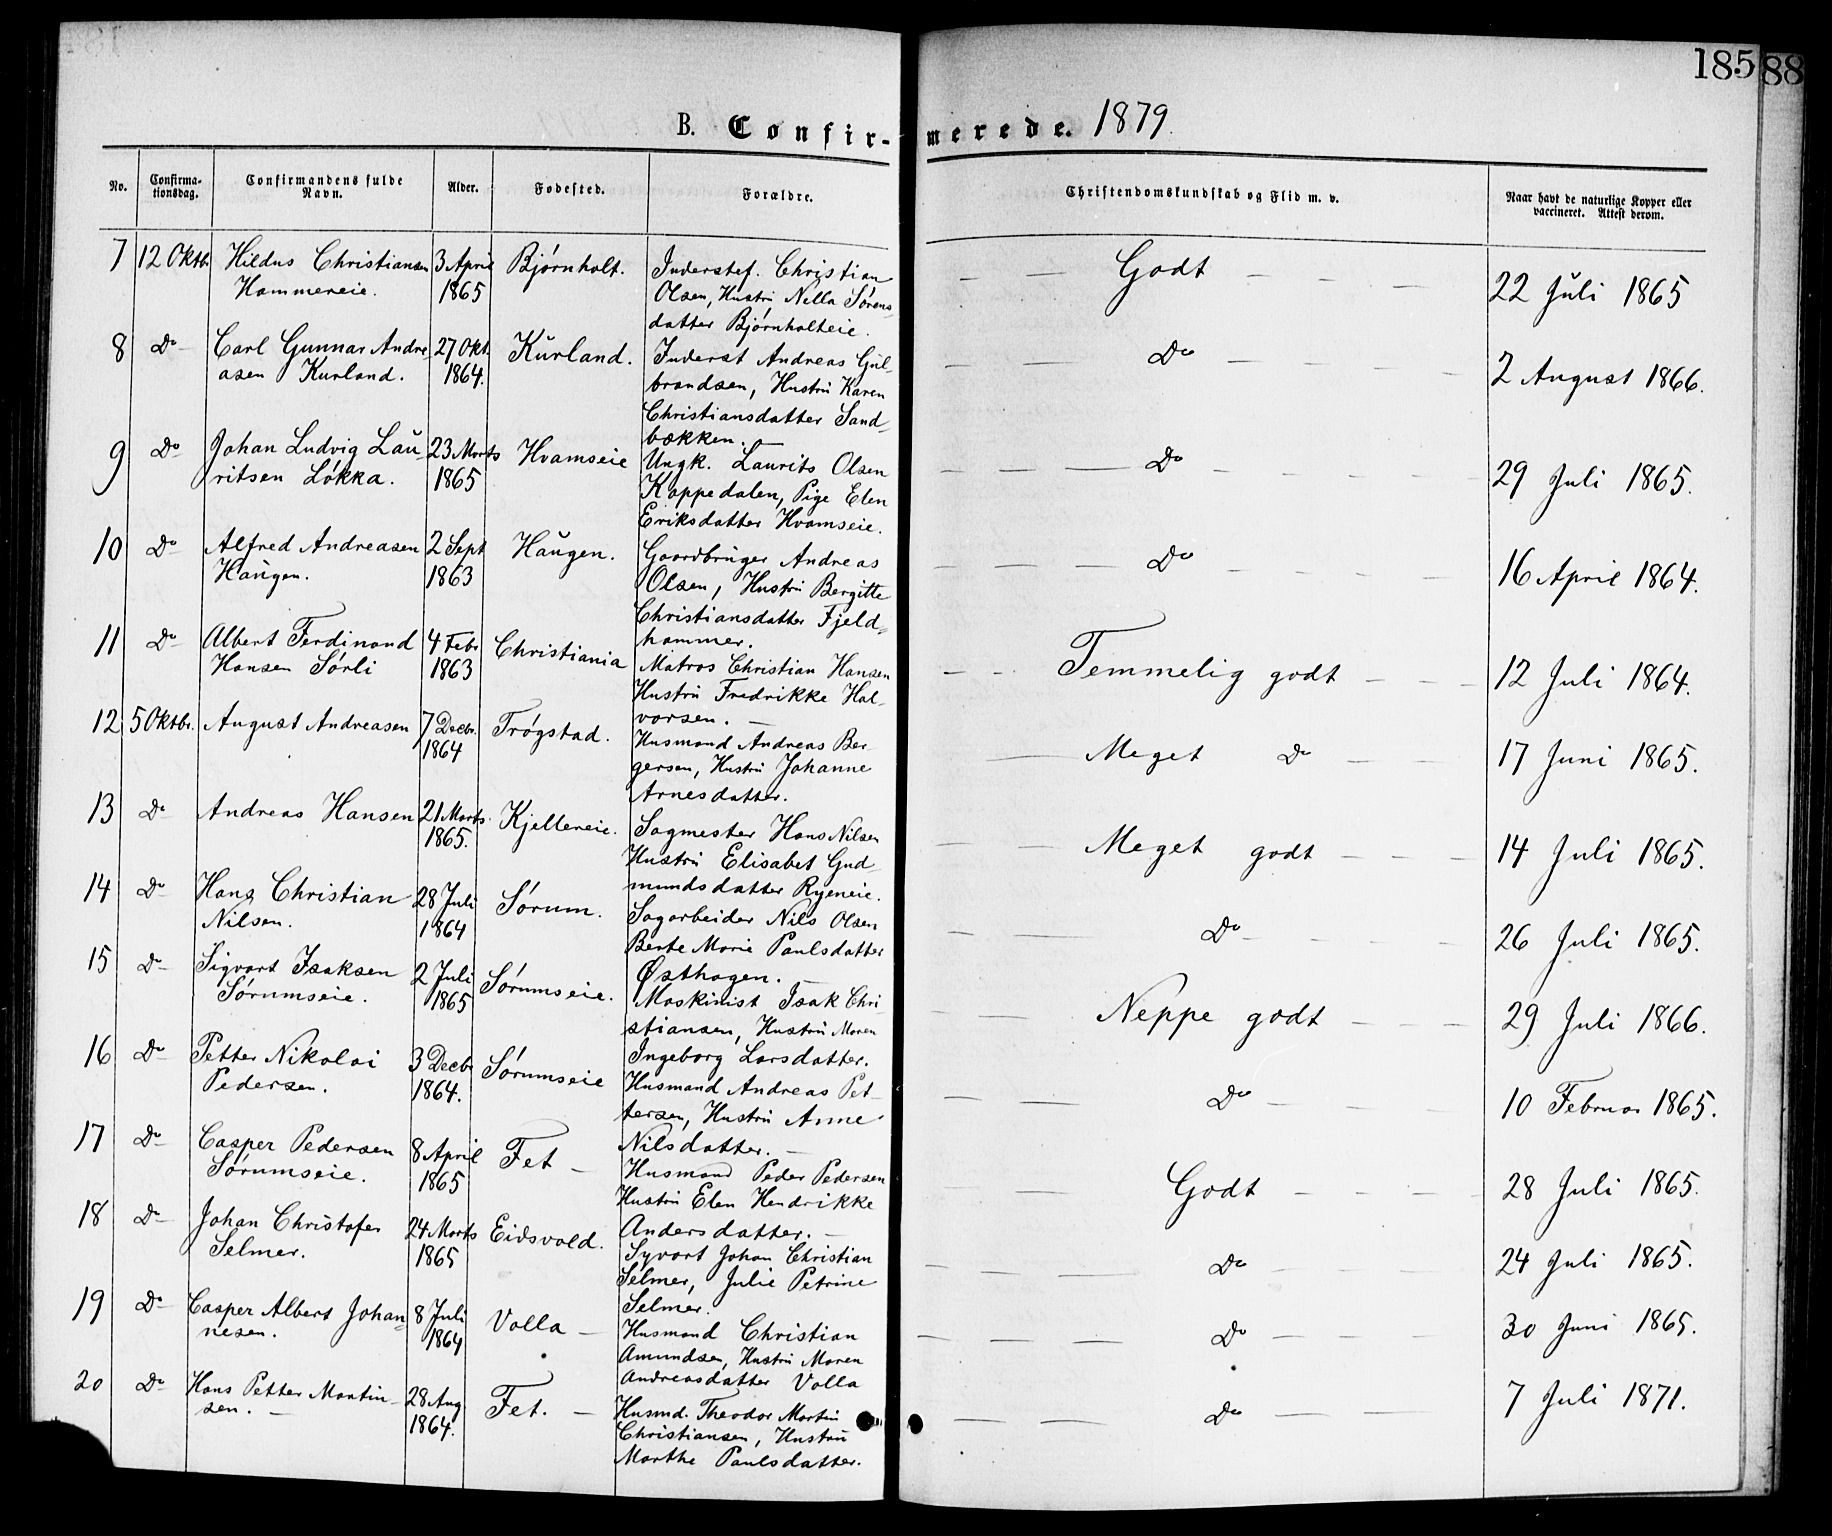 185
88
B. Confir-
merede. 1879.
No.
Confirma-
tionsdag.
Confirmandens fulde
Navn.
Alder.
Fødested.
Forældre.
Christendomskundskab og Flid m. v.
Naar havt de naturlige Kopper eller
vaccineret. Attest derom.
7 12 Oktb. Hildus Christiansen 3 April Bjørnholt. Inderstef. Christian — — Godt — — — 22 Juli 1865
Hammereie. 1865 Olsen, Hustru Nella Sørens-
datter Bjørnholteie.
8 Do Carl Gunnar Andre 27 Okt. Kurland. Inderst Andreas Gul- Do — — — 2 August 1866.
asen Kurland. 1864. brandsen, Hustru Karen
Christiansdatter Sand-
bækken. —
9 Do Johan Ludvig Lau- 23 Marts Hvamseie Ungk. Laurits Olsen — — — Do — — — 29 Juli 1865.
ritsen Løkka. 1865 Koppedalen, Pige Elen
Eriksdatter Hvamseie.
10 Do Alfred Andreasen 2 Sept Haugen. Gaardbruger Andreas — — — Do — — — 16 April 1864.
Haugen. 1863 Olsen, Hustru Bergitte
Christiansdatter Fjeld-
hammer.
11 Do Albert Ferdinand 4 Febr Christiania Matros Christian Hansen — — Temmelig godt — — — 12 Juli 1864.
Hansen Sørli 1863 Hustru Fredrikke Hal-
vorsen. —
12 5 Oktbr. August Andreasen 7 Decbr. Trøgstad. Husmand Andreas Ber- — Meget Do — — 17 Juni 1865.
1864 gersen, Hustru Johanne
Arnesdatter.
13 Do Andreas Hansen 21 Marts. Kjellereie. Sagmester Hans Nilsen — — Meget godt — — — 14 Juli 1865.
1865. Hustru Elisabet Gud-
mundsdatter Ryeneie.
14 Do Hans Christian 28 Juli Sørum. Sagarbeider Nils Olsen — — Do — — — 26 Juli 1865.
Nilsen. 1864 Berte Marie Paulsdatter
Østhagen. —
15 Do Sigvart Isaksen 2 Juli Sørumseie. Maskinist Isak Chri — — Neppe godt — — 29 Juli 1866.
Sørumseie. 1865 stiansen, Hustru Maren
Ingeborg Larsdatter.
16 Do Petter Nikolai 3 Decb. Sørumseie Husmand Andreas Pet- — — Do — — — 10 Februar 1865.
Pedersen. 1864. tersen, Hustru Anne
Nilsdatter. —
17 Do Casper Pedersen 8 April Fet — Husmand Peder Pedersen — — Godt — — — 28 Juli 1865.
Sørumseie. 1865 Hustru Elen Hendrikke
Andersdatter. —
18 Do Johan Christofer 24 Marts Eidsvold. Johan Christian — — — Do — — — 24 Juli 1865.
Selmer. 1865 Selmer, Julie Petrine
Selmer.
19 Do Casper Albert Johan- 8 Juli Volla — Husmand Christian — — — Do — — — 30 Juni 1865.
nesen. 1864 Amundsen, Hustru Maren
Andreasdatter Volla
20 Do Hans Petter Martin- 28 Aug Fet. — Husmd. Theodor Martin — — Do — — 7 Juli 1871.
sen. — 1864. Christiansen, Hustru
Marthe Paulsdatter.